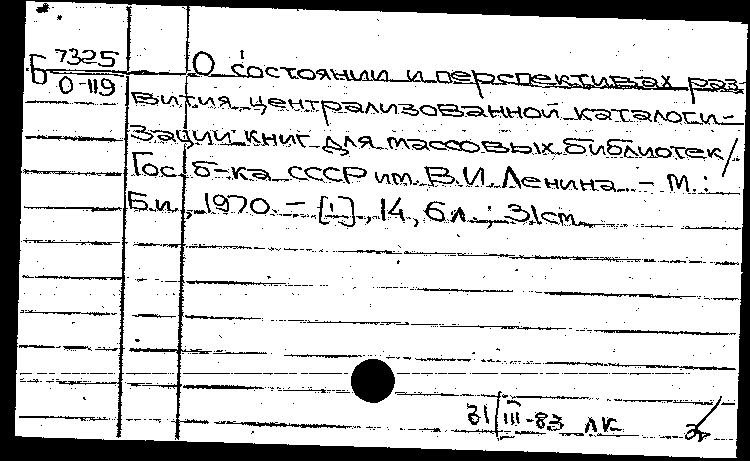 Б 7325
О-119
О состоянии и перспективах раз-
вития централизованной каталоги-
зации книг для массовых библиотек/
Гос. б-ка СССР им. В.И. Ленина. - М.:
Б.и., 1970. - [1], 14, 6 л.; 31 см.
31/III-83 лк